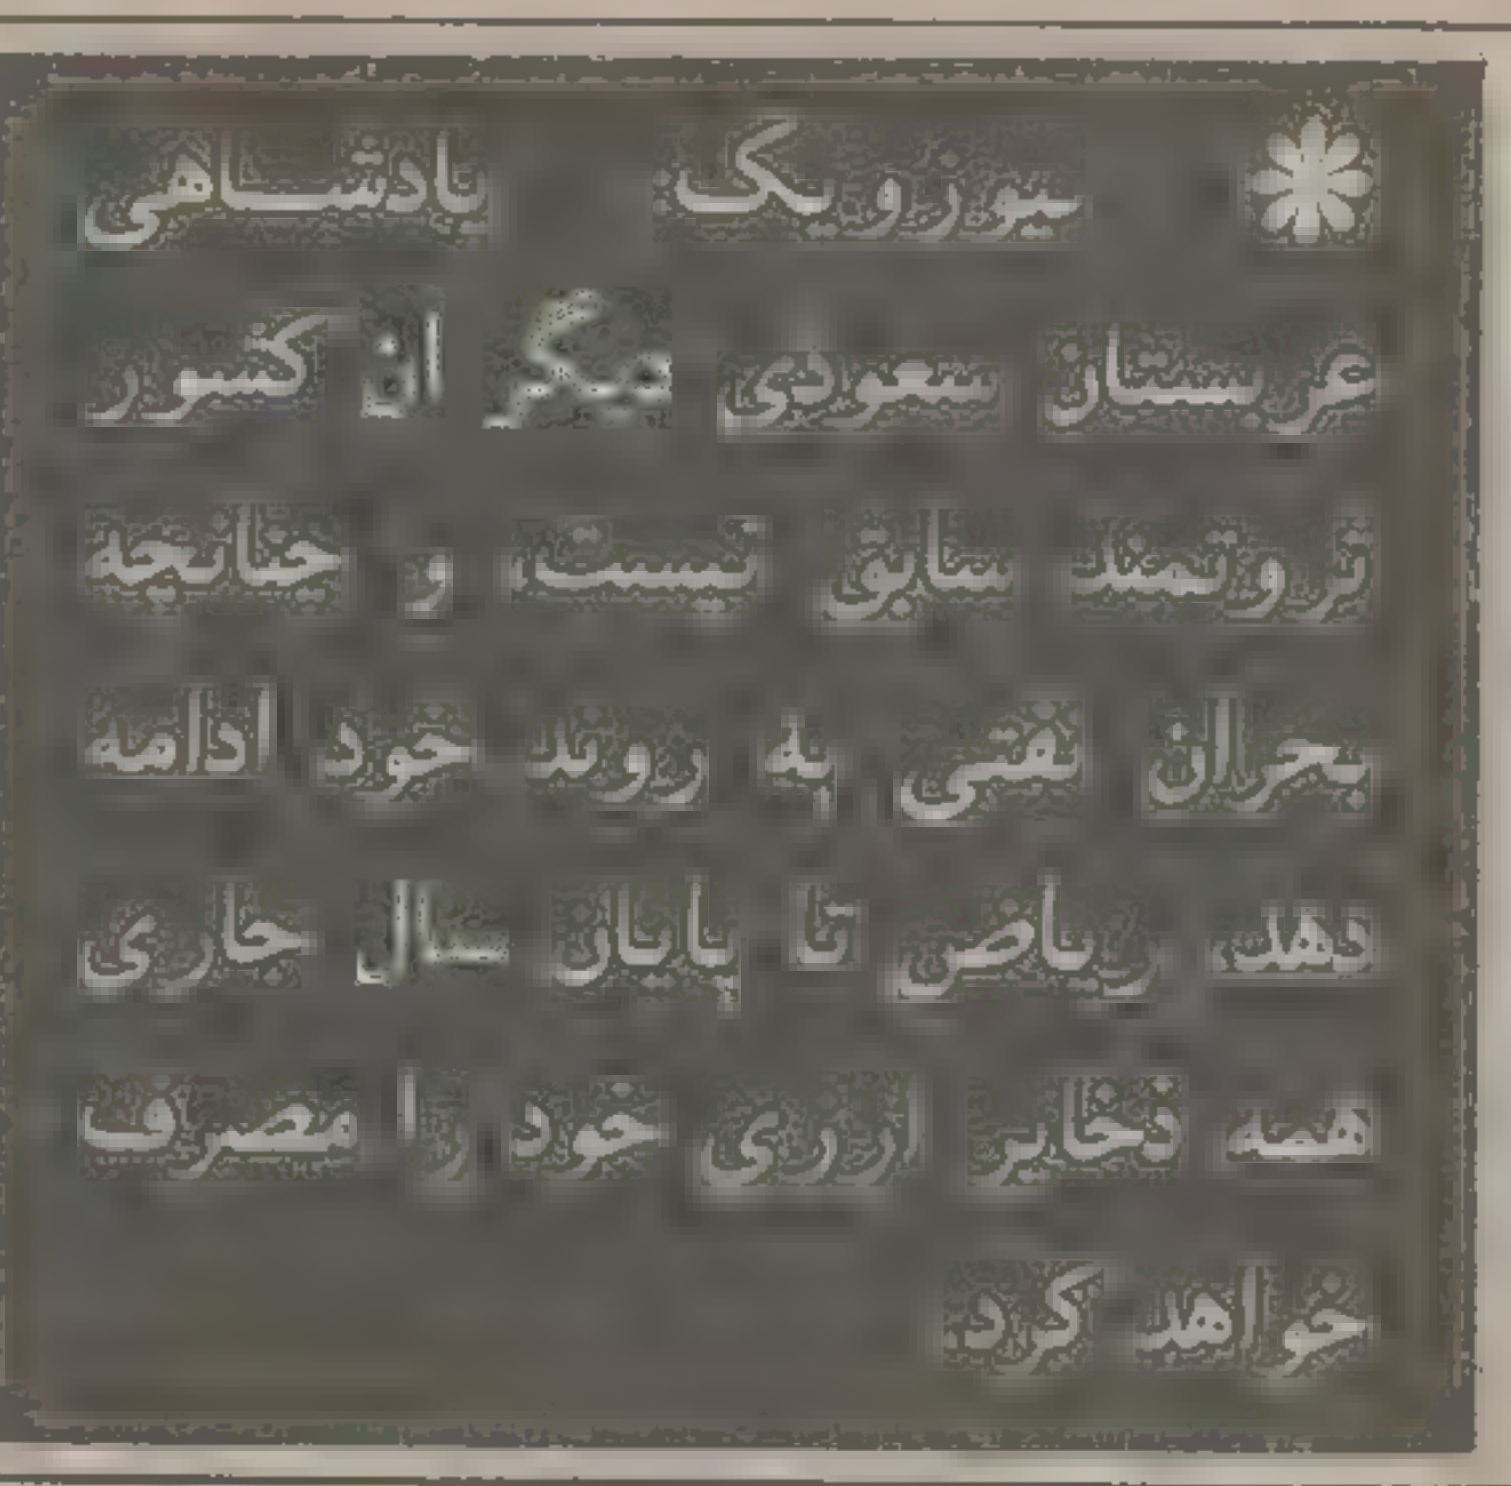 نیوزویک پادشاهی
عربستان سعودی دیگر آن کشور
ثروتمند سابق نیست و چنانچه
بحران نفتی به روند خود ادامه
دهد ریاض تا پایان سال جاری
همه ذخایر ارزی خود را مصرف
خواهد کرد